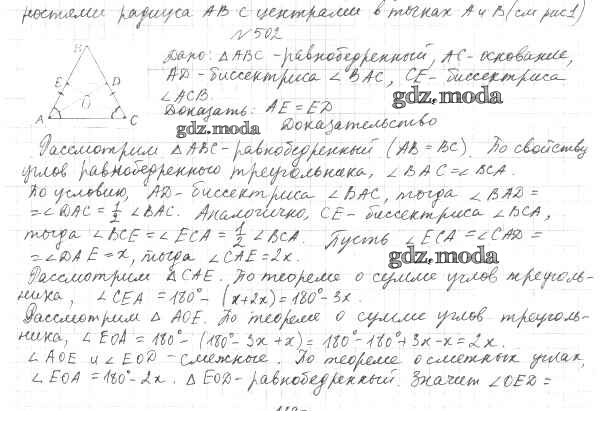 ностями радиуса AB с центрами в точках A и B (см рис 1)
№ 502
Дано: △ABC - равнобедренный, AC - основание,
AD - биссектриса ∠BAC, CE - биссектриса
∠ACB.
gdz.moda
Доказать: AE = ED
gdz.moda
Доказательство
B
E
D
O
A
C
Рассмотрим △ABC - равнобедренный (AB = BC). По свойству
углов равнобедренного треугольника, ∠BAC = ∠BCA.
По условию, AD - биссектриса ∠BAC, тогда ∠BAD =
= ∠DAC = 1/2 ∠BAC. Аналогично, CE - биссектриса ∠BCA,
тогда ∠BCE = ∠ECA = 1/2 ∠BCA. Пусть ∠ECA = ∠CAD =
= ∠DAE = x, тогда ∠CAE = 2x.
gdz.moda
Рассмотрим △CAE. По теореме о сумме углов треуголь-
ника, ∠CEA = 180° - (x+2x) = 180° - 3x.
Рассмотрим △AOE. По теореме о сумме углов треуголь-
ника, ∠EOA = 180° - (180° - 3x + x) = 180° - 180° + 3x - x = 2x.
∠AOE и ∠EOD - смежные. По теореме о смежных углах,
∠EOA = 180° - 2x. △EOD - равнобедренный. Значит ∠OED =